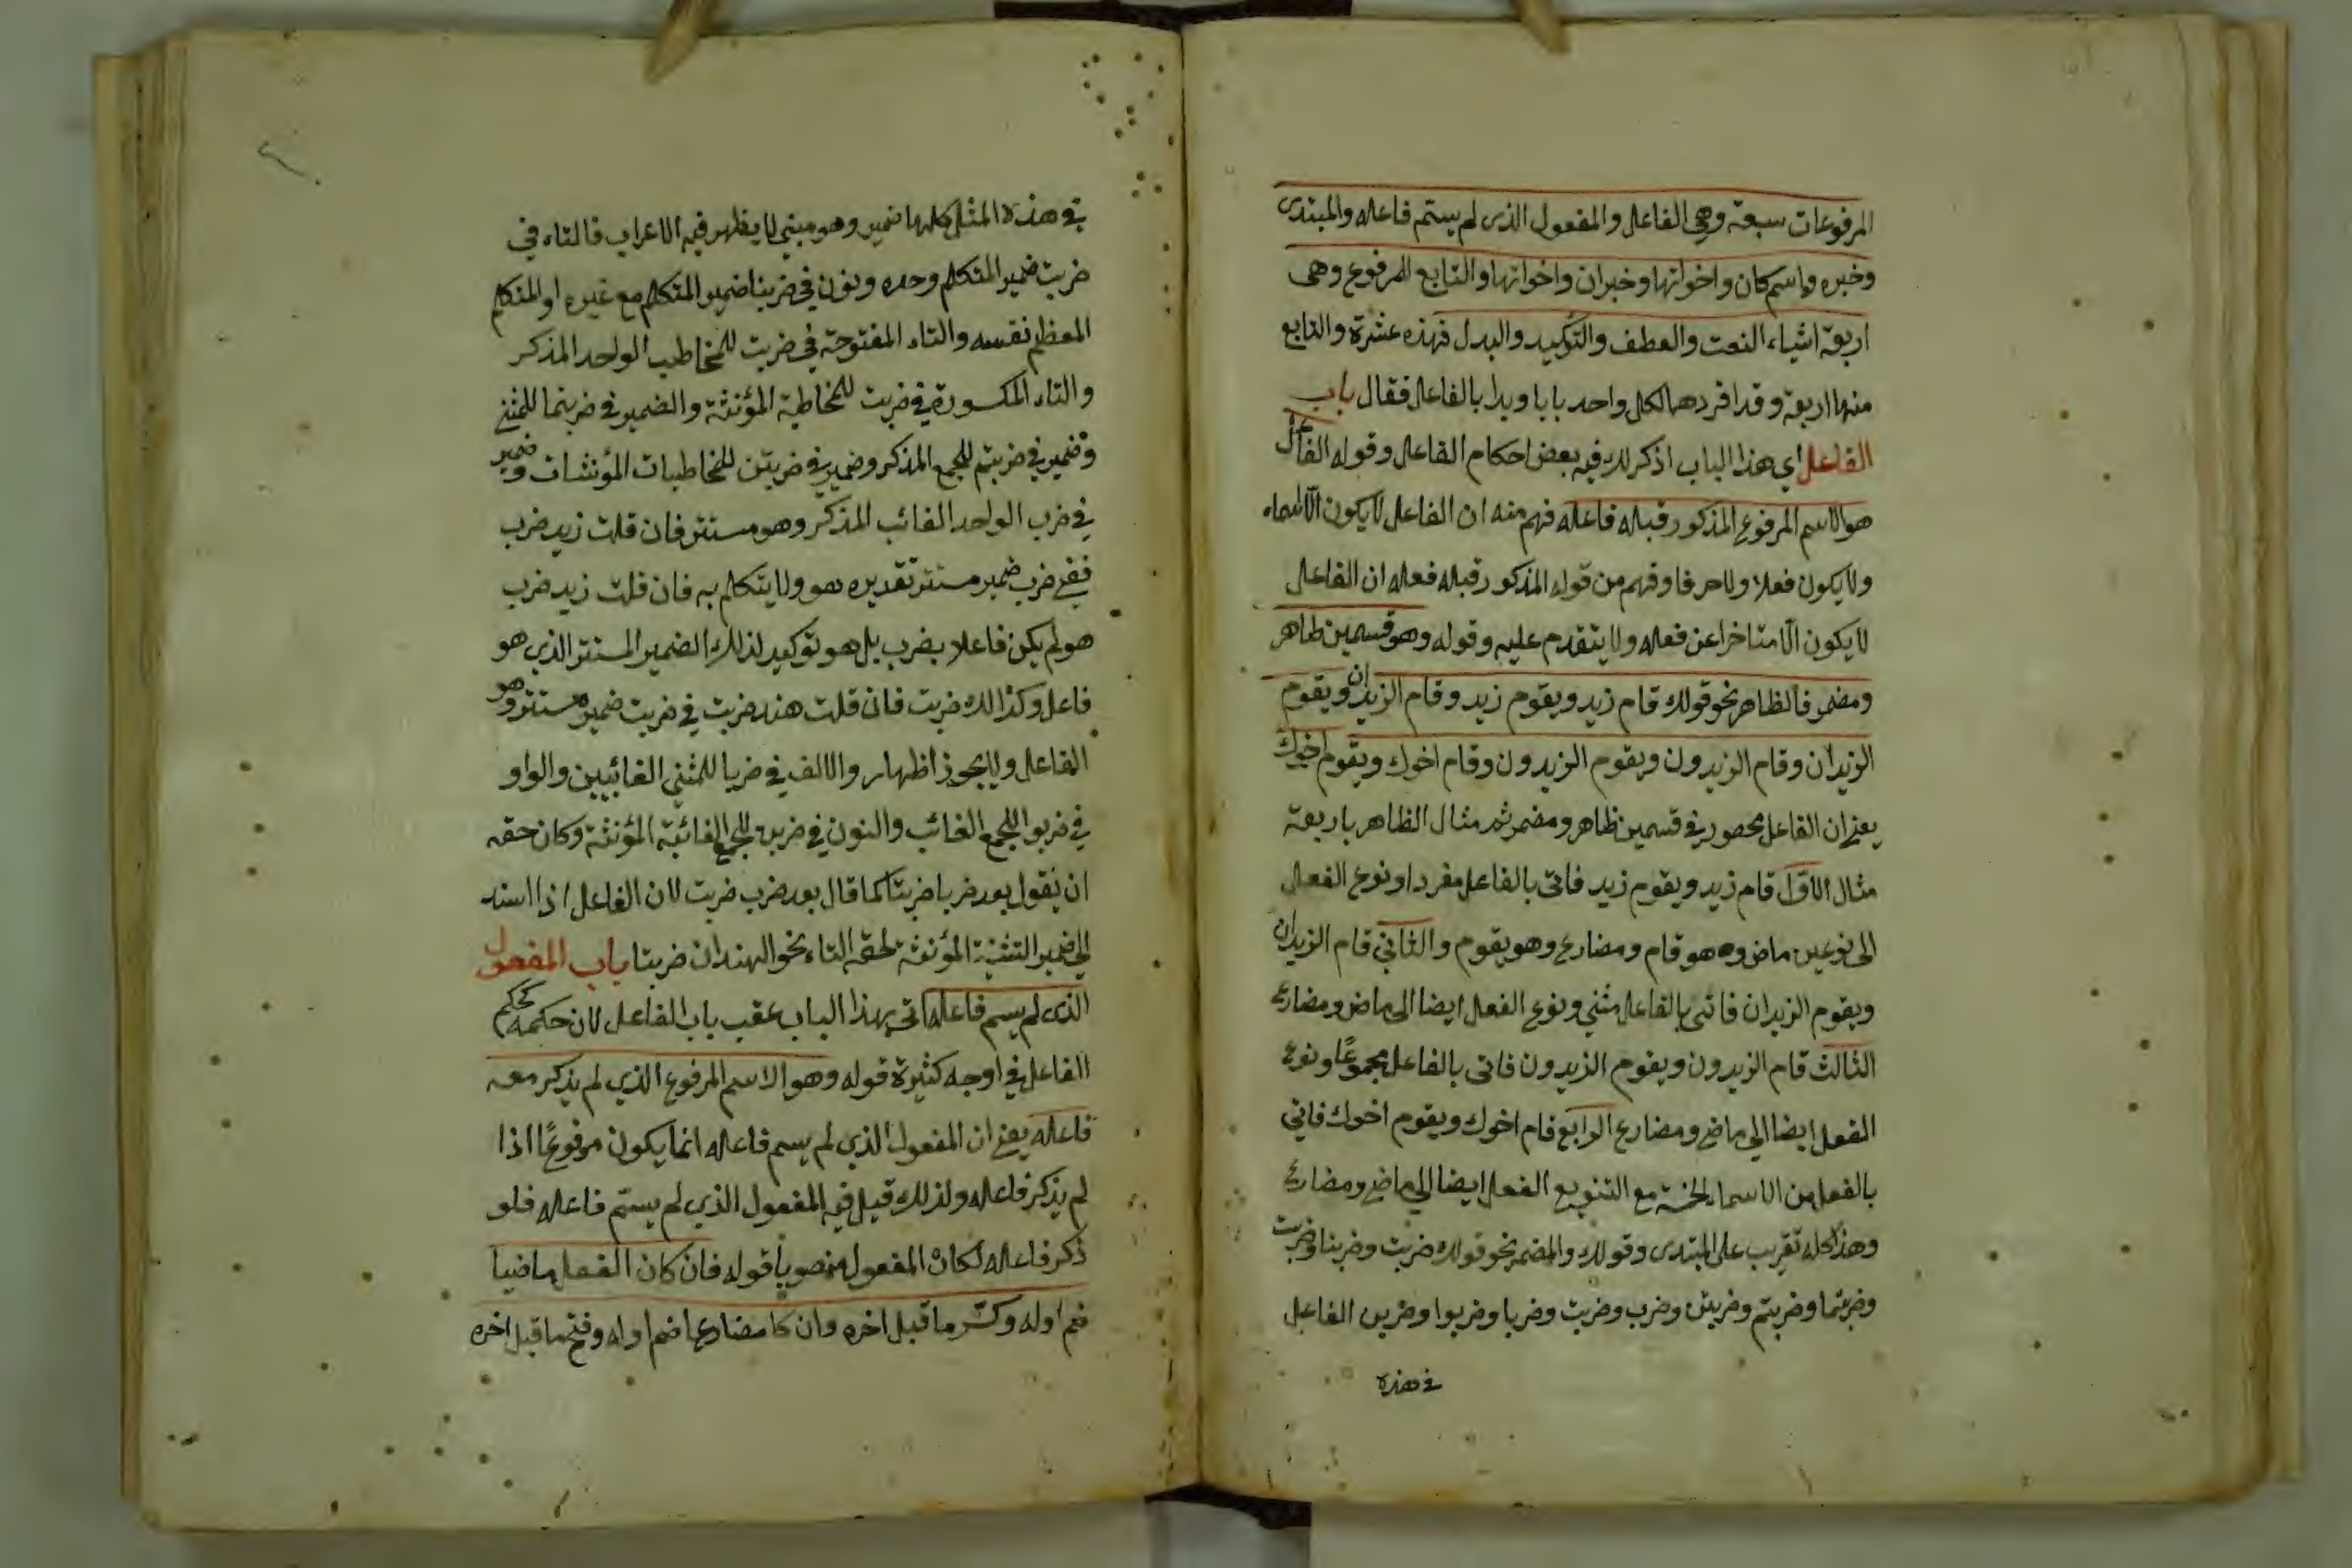 المرفوعات سبعة وهي الفاعل والمفعول الذى لم يسم فاعله والمبتدى
وخبره واسم كان واخواتها وخبر ان واخواتها والتابع للمرفوع وهى
اربعة اشياء النعت والعطف والتوكيد والبدل فهذه عشرة والتابع
منها اربعة وقد افردها لكل واحد بابا وبدا بالفاعل فقال باب
الفاعل اي هذا الباب اذكر لك فيه بعض احكام الفاعل وقوله الفاعل
هو الاسم المرفوع المذكور قبله فاعله فهم منه ان الفاعل لا يكون الا اسماء
ولا يكون فعلا ولا حرفا وفهم من قوله المذكور قبله فعله ان الفاعل
لا يكون الا متاخرا عن فعله ولا يتقدم عليه وقوله وهو قسمين ظاهر
ومضمر فالظاهر نحو قولك قام زيد ويقوم زيد وقام الزيدان ويقوم
الزيدان وقام الزيدون ويقوم الزيدون وقام اخوك ويقوم اخوك
يعنى ان الفاعل محصور في قسمين ظاهر ومضمر ثم مثال الظاهر باربعة
مثال الاول قام زيد ويقوم زيد فاتى بالفاعل مفردا ونوع الفعل
الى نوعين ماض وهو قام ومضارع وهو يقوم والثاني قام الزيدان
ويقوم الزيدان فاتى بالفاعل مثني ونوع الفعل ايضا الى ماض ومضارع
الثالث قام الزيدون ويقوم الزيدون فاتى بالفاعل مجموعًا ونوع
الفعل ايضا الي ماض ومضارع الرابع قام اخوك ويقوم اخوك فاتي
بالفعل من الاسماء الخمسة مع التنويع الفعل ايضا الي ماض ومضارع
وهذا كله تقريب على المبتدى وقولك والمضمر نحو قولك ضربت وضربنا وضربت
وضربتما وضربتم وضربتن وضرب وضربت وضربا وضربوا وضربن الفاعل
في هذه
في هذه المثل كلها ضمير وهو مبني لا يظهر فيه الاعراب فالتاء في
ضربت ضمير المتكلم وحده ونون في ضربنا ضمير المتكلم مع غيره او المتكلم
المعظم نفسه والتاء المفتوحة في ضربت للمخاطب الواحد المذكر
والتاء المكسورة في ضربت للمخاطبة المؤنثة والضمير في ضربتما للمثنى
وضمير في ضربتم للجمع المذكر وضمير في ضربتن للمخاطبات المؤنثات وضمير
في ضرب الواحد الغائب المذكر وهو مستتر فان قلت زيد ضرب
ففى ضرب ضمير مستتر تقديره هو ولا يتكلم به فان قلت زيد ضرب
هو لم يكن فاعلا بضرب بل هو توكيد لذلك الضمير المستتر الذي هو
فاعل وكذالك ضربت فان قلت هند ضربت في ضربت ضمير مستتر وهو
الفاعل ولا يجوز اظهار والالف في ضربا للمثني الغائبين والواو
في ضربوا للجمع الغائب والنون في ضربن للجمع الغائبة المؤنثة وكان حقه
ان يقول بعد ضربا ضربتا كما قال بعد ضرب ضربت لان الفاعل اذا اسند
الي ضمير التثنية المؤنثة لحقه التاء نحو الهندان ضربتا باب المفعول
الذى لم يسم فاعله اتى بهذا الباب عقب باب الفاعل لان حكمه كحكم
الفاعل في اوجه كثيرة قوله وهو الاسم المرفوع الذي لم يذكر معه
فاعله يعنى ان المفعول الذي لم يسم فاعله انما يكون مرفوعًا اذا
لم يذكر فاعله ولذلك قيل فيه المفعول الذي لم يسم فاعله فلو
ذكر فاعله لكان المفعول منصوبا قوله فان كان الفعل ماضيا
ضم اوله وكسر ما قبل اخره وان كا مضارعا ضم اوله وفتح ما قبل اخره